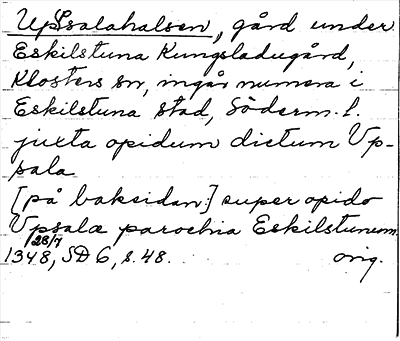 Uppsalahalsen, gård under
Eskilstuna Kungsladugård,
Klosters sn, ingår numera i
Eskilstuna stad, Söderm. l.
juxta opidum dictum Vp-
sala
[på baksidan:] super opido
Vpsalæ parochia Eskilstunem
28/7
1348, SD 6, s. 48. orig.